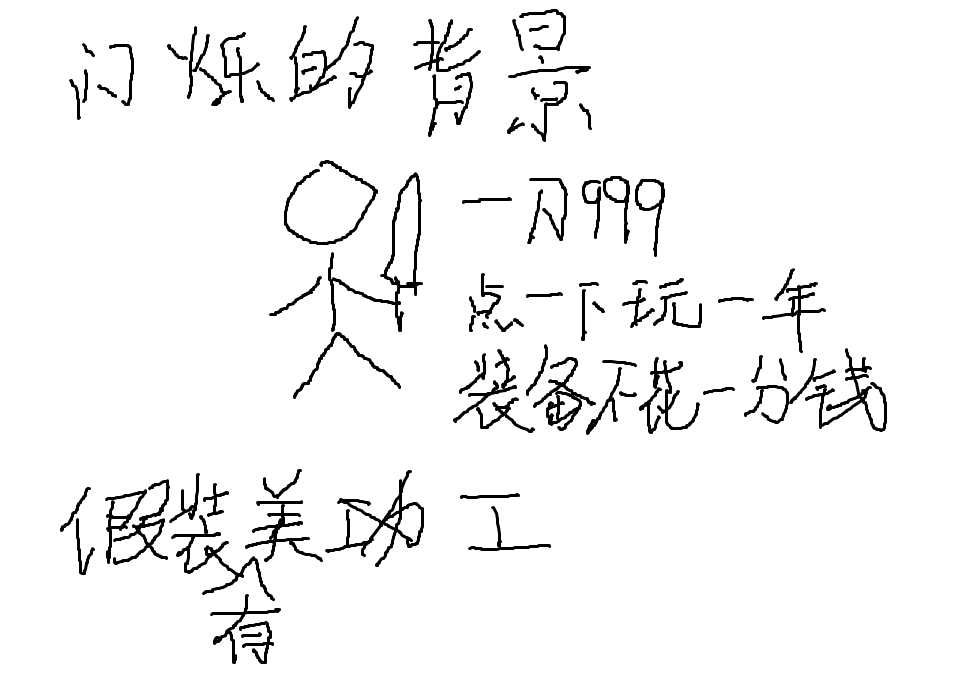 闪烁的背景
一刀999
点一下玩一年
装备不花一分钱
假装有美工